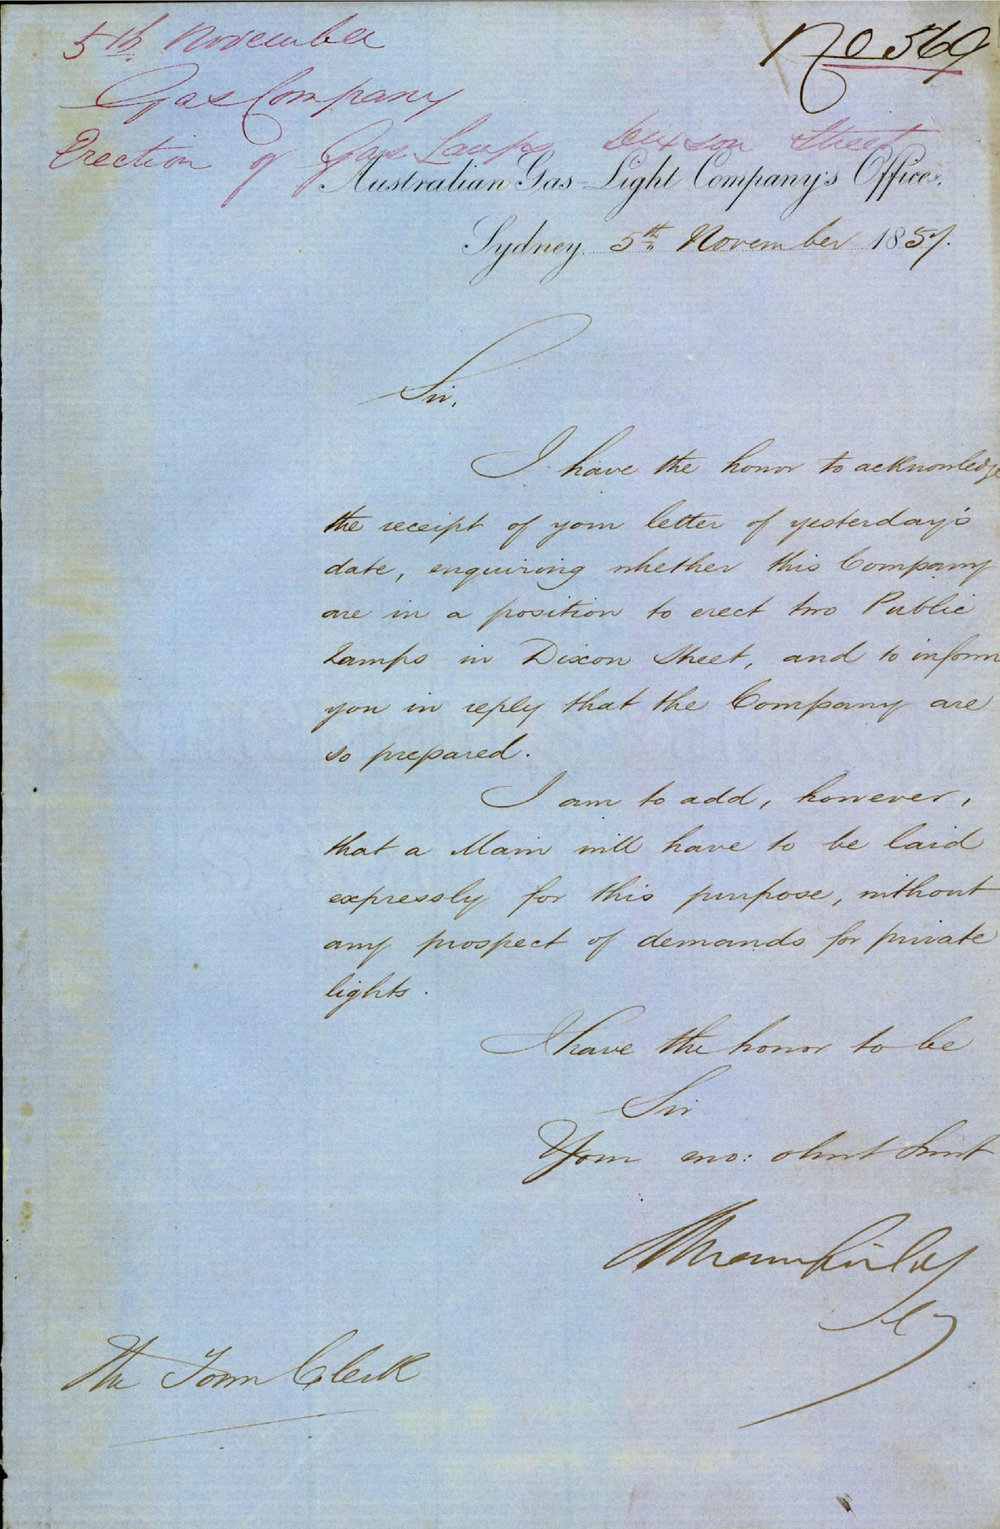 5th November
No 569
Gas Company
Erection of Gas Lamps Dixson Street
Australian Gas-Light Company's Offices,
Sydney, 5th November 1857.
Sir,
I have the honor to acknowledge
the receipt of your letter of yesterday's
date, enquiring whether this Company
are in a position to erect two Public
Lamps in Dixon Street, and to inform
you in reply that the Company are
so prepared.
I am to add, however,
that a Main will have to be laid
expressly for this purpose, without
any prospect of demands for private
lights.
I have the honor to be
Sir
Your mo: obnt Srvnt
Secy
The Town Clerk